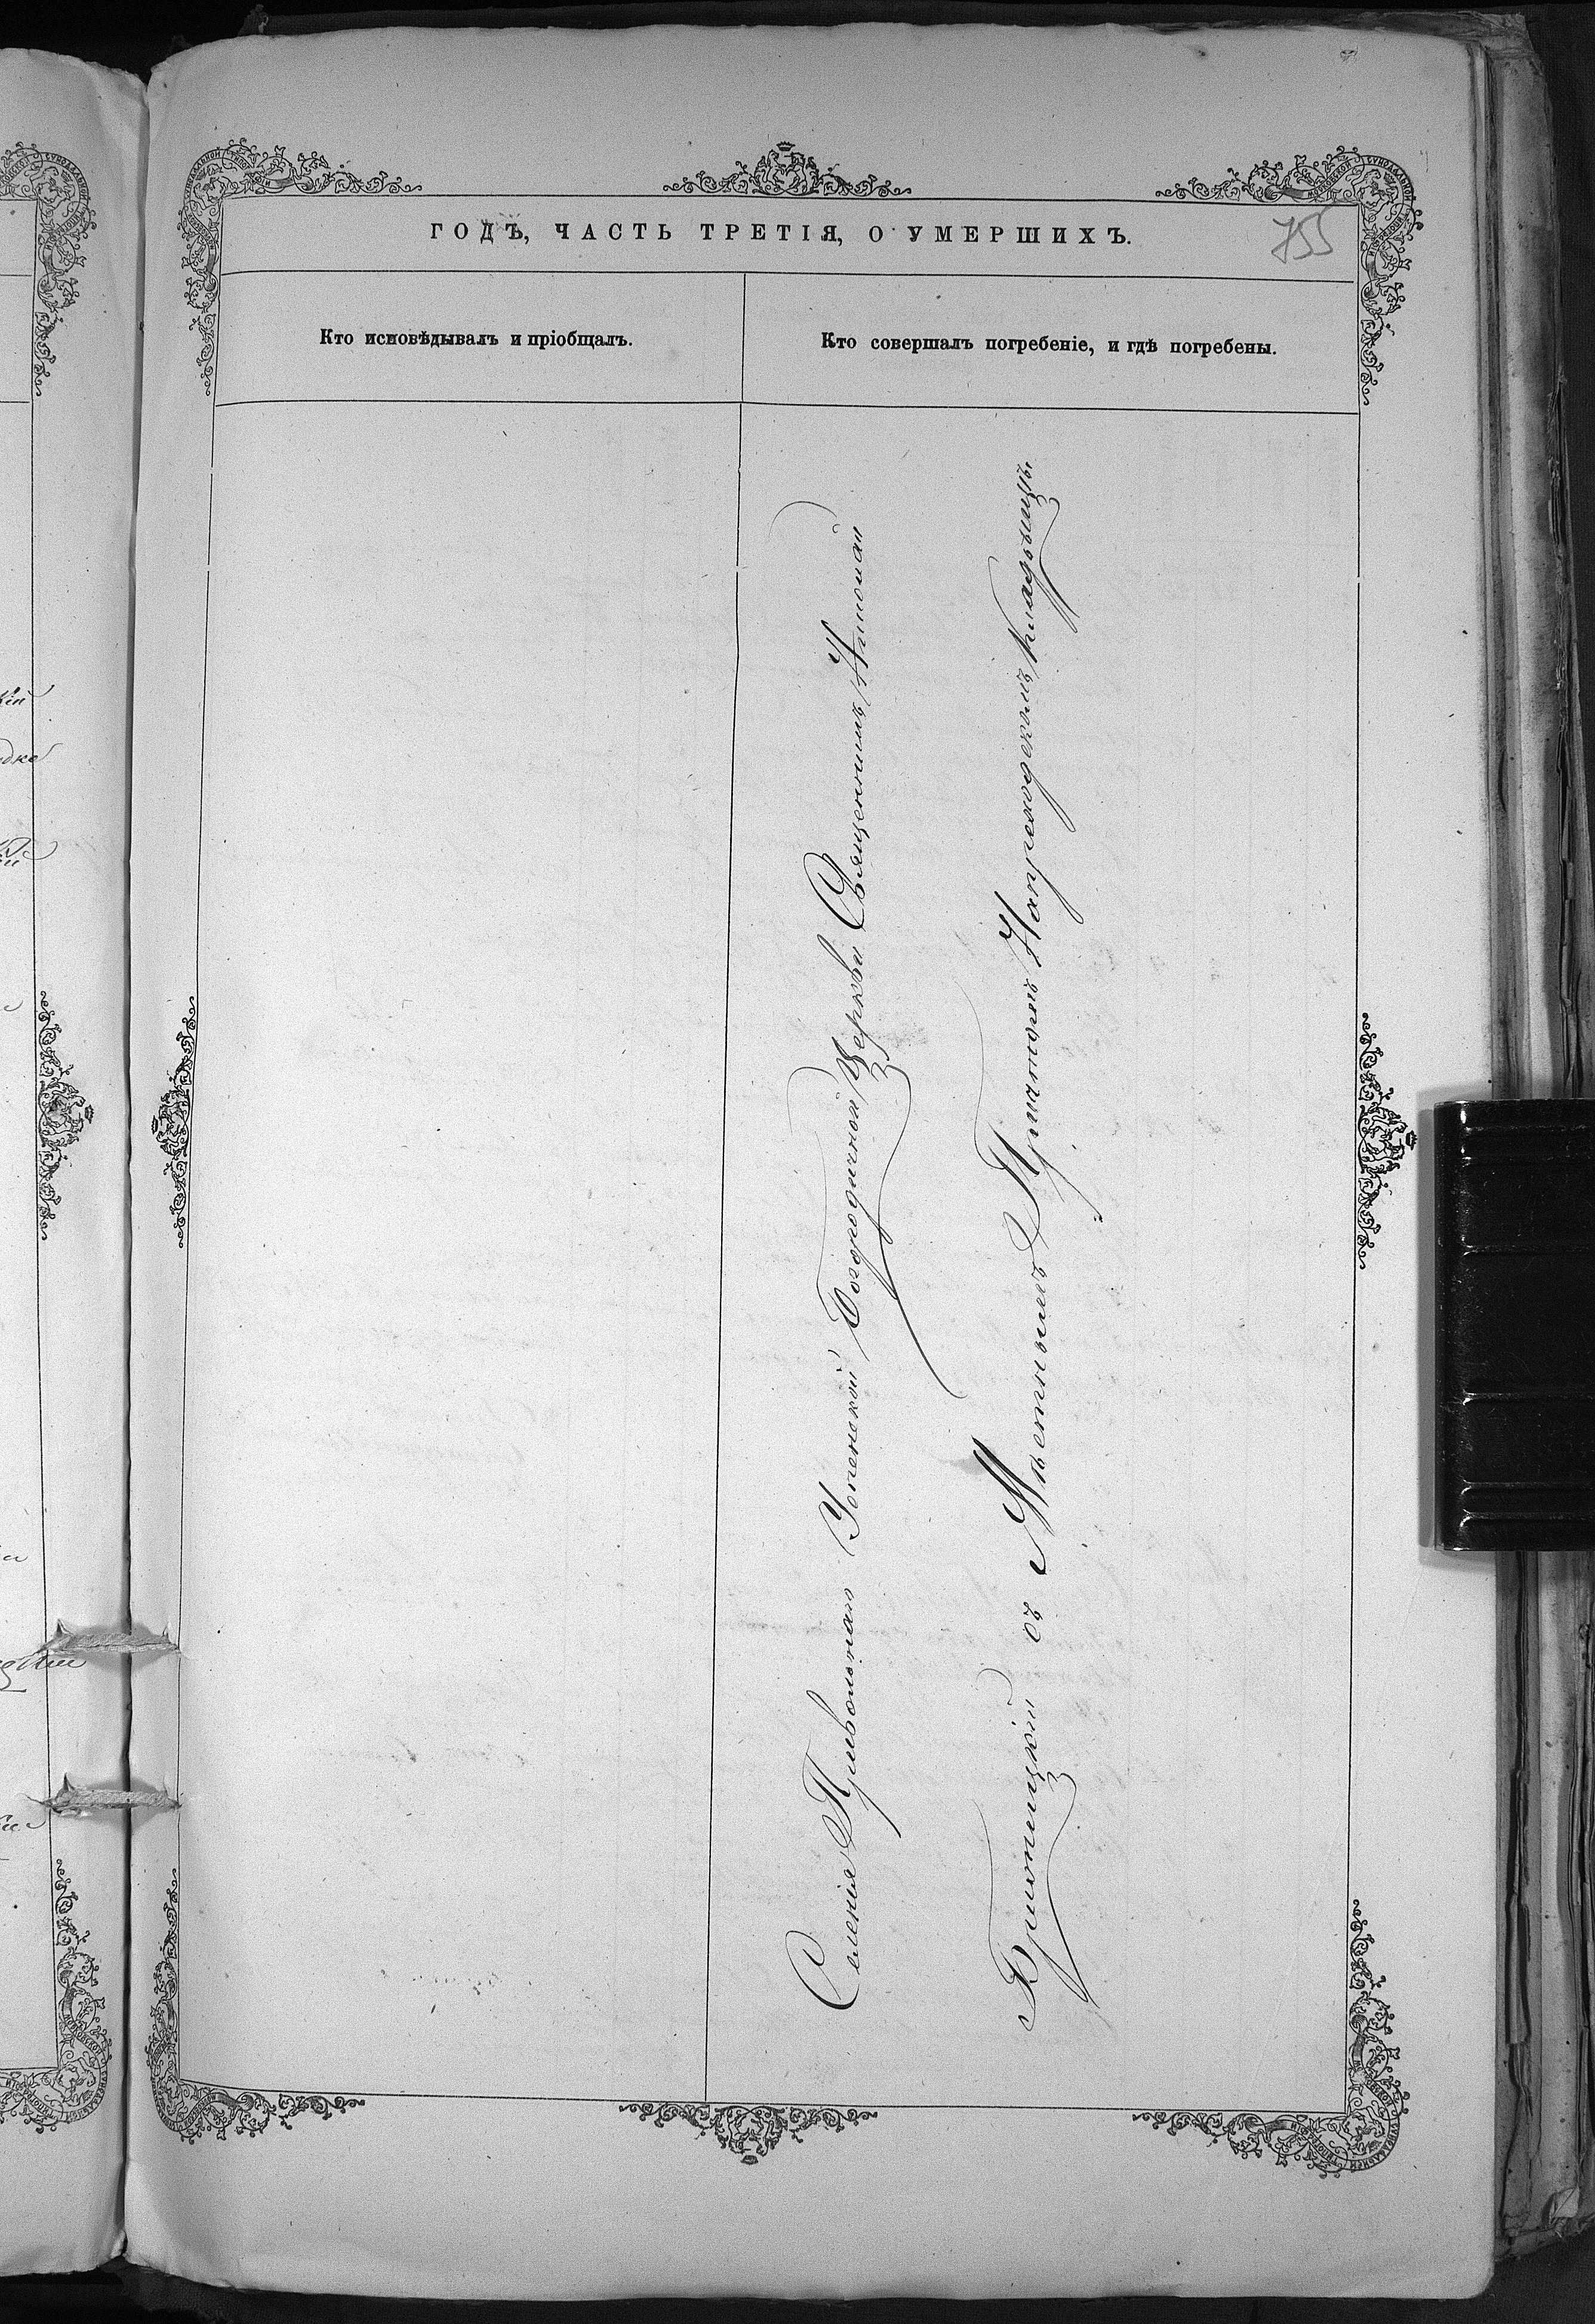 ГОДЪ, ЧАСТЬ ТРЕТІЯ, О УМЕРШИХЪ.
755
Кто исповѣдывалъ и пріобщалъ.
Кто совершалъ погребеніе, и гдѣ погребены.
Селенія Привольнаго Успенской Богородичной Церкви Священникъ Николай
Кришицкій съ Мѣстнымъ Причтомъ На приходскомъ Кладбищѣ.